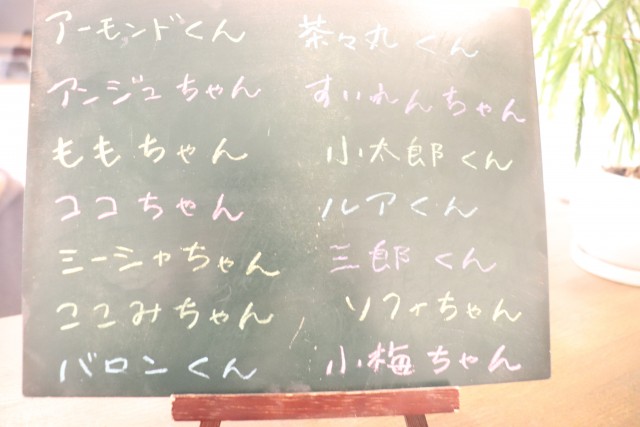 アーモンドくん
アンジュちゃん
ももちゃん
ココちゃん
ミーシャちゃん
ここみちゃん
バロンくん
茶々丸くん
すいれんちゃん
小太郎くん
ルアくん
三郎くん
ソフィちゃん
小梅ちゃん